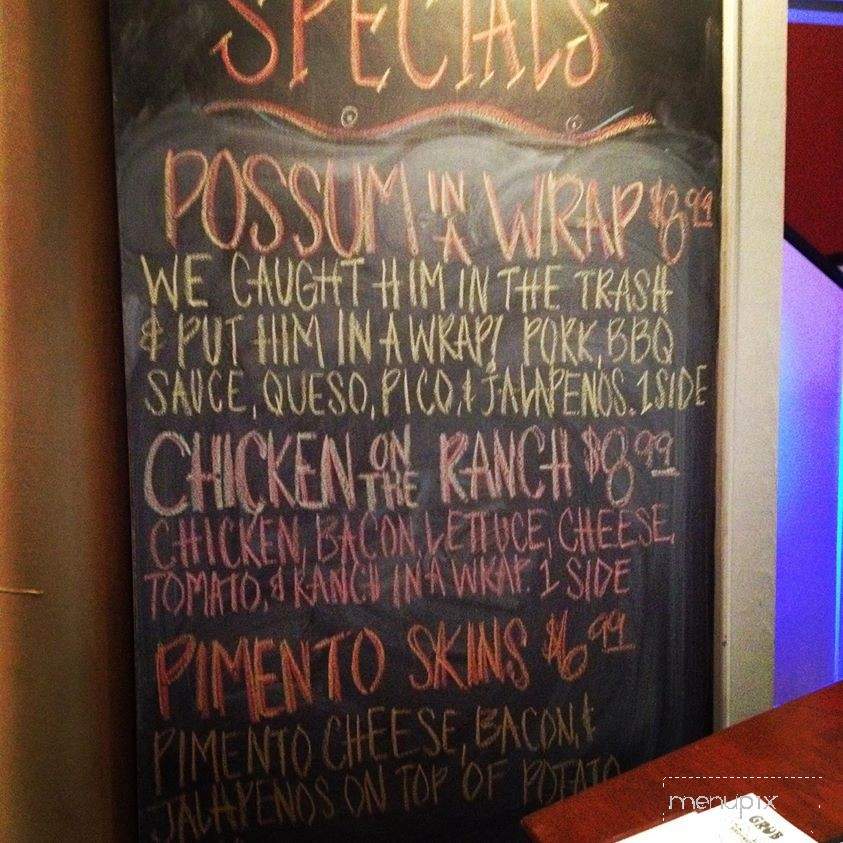 SPECIALS
POSSUM IN A WRAP $8.99
WE CAUGHT HIM IN THE TRASH
& PUT HIM IN A WRAP! PORK, BBQ
SAUCE, QUESO, PICO, & JALAPENOS. 1 SIDE
CHICKEN ON THE RANCH $8.99
CHICKEN, BACON, LETTUCE, CHEESE,
TOMATO, & RANCH IN A WRAP. 1 SIDE
PIMENTO SKINS $6.99
PIMENTO CHEESE, BACON, &
JALAPENOS ON TOP OF POTATO
menupix
GRUB